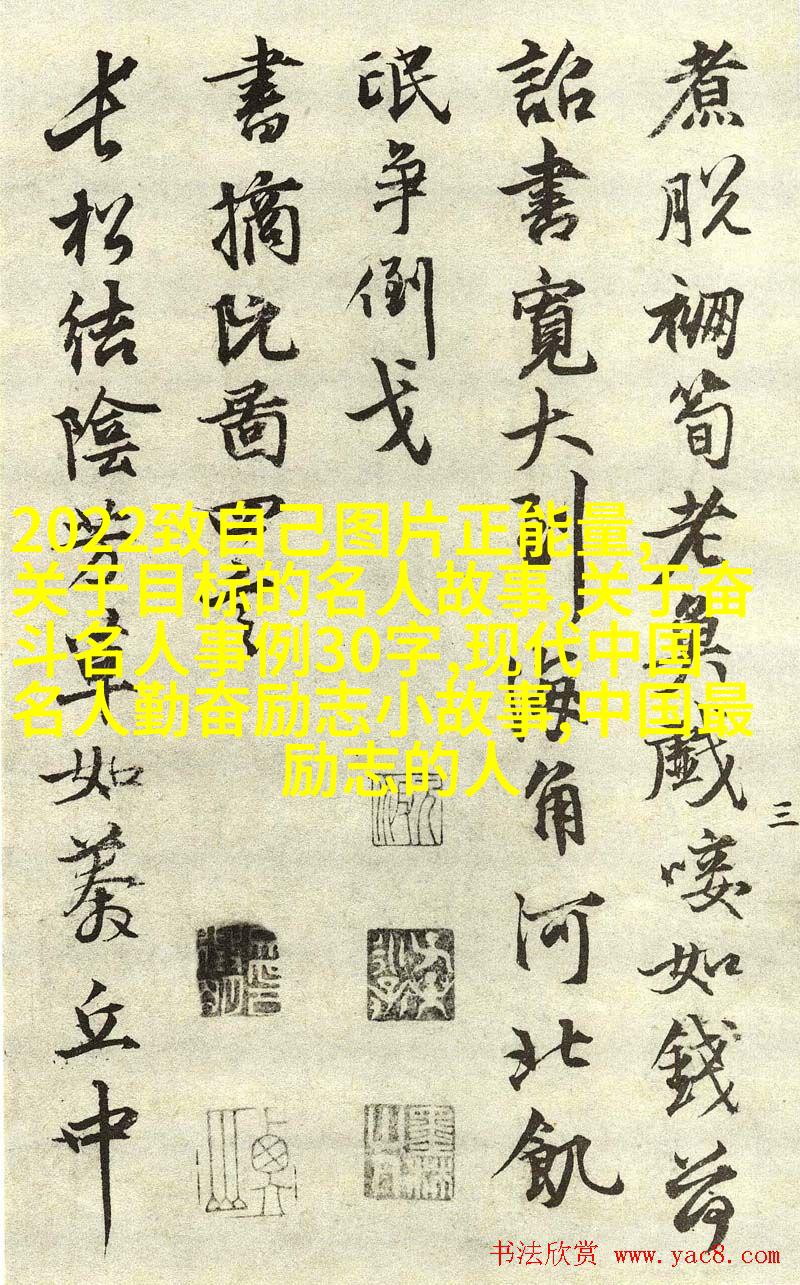 煮脱筍老唼如錢荷
詔書寬大到海角河北飢
氓争倒戈
書摘阮圖四
長松結陰草如綦丘中
三
2022致自己图片正能量,
关于目标的名人故事,关于奋
斗名人事例30字,现代中国
名人勤奋励志小故事,中国最
励志的人
书法欣赏 www.yac8.com